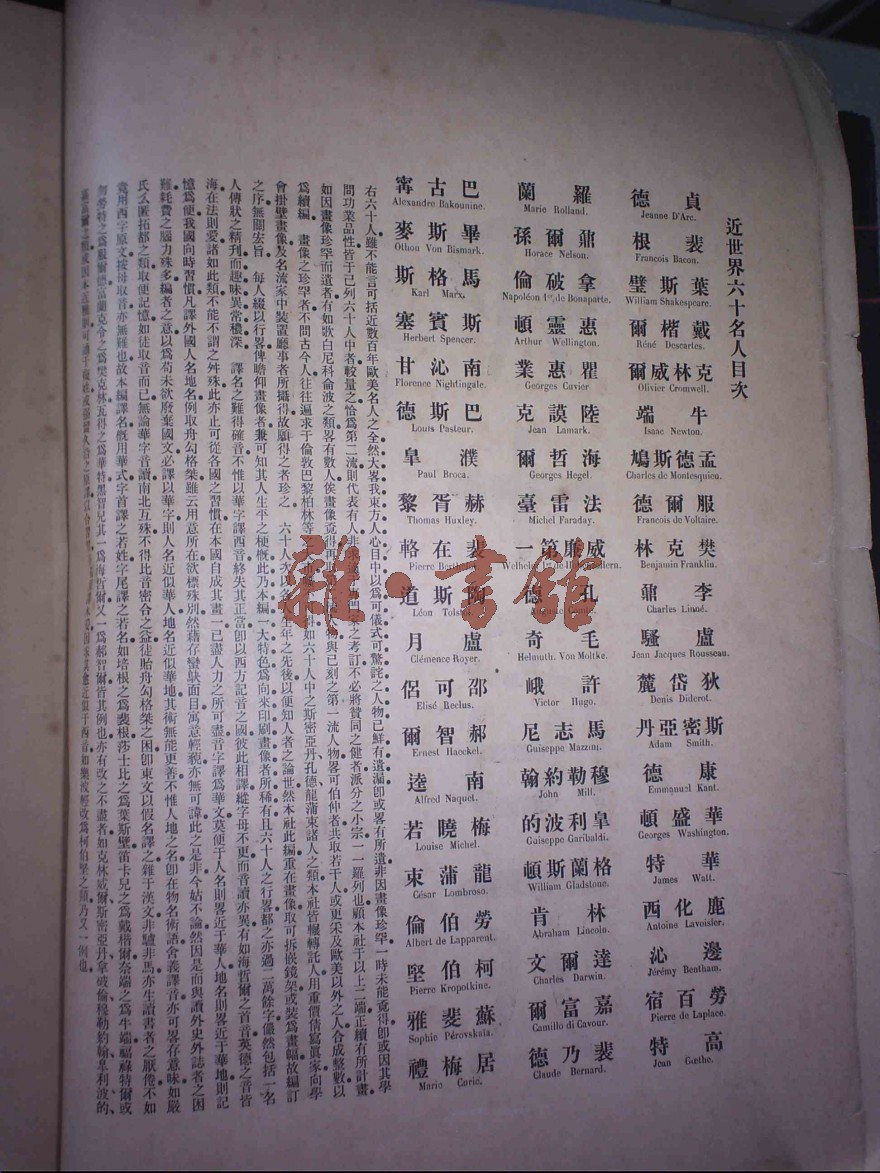 近世界六十名人目次
貞德
Jeanne D'Arc.
裴根
Francois Bacon.
葉斯璧
William Shakespeare.
戴楷爾
Réné Descartes.
克林威爾
Olivier Cromwell.
牛端
Isaac Newton.
孟德斯鳩
Charles de Montesquieu.
服爾德
Francois de Voltaire.
樊克林
Benjamin Franklin.
李鼐
Charles Linné.
盧騷
Jean Jacques Rousseau.
狄岱麓
Denis Diderot.
斯密亞丹
Adam Smith.
康德
Emmanuel Kant.
華盛頓
Georges Washington.
華特
James Watt.
鹿化西
Antoine Lavoisier.
邊沁
Jérémy Bentham.
勞百宿
Pierre de Laplace.
高特
Jean Gœthe.
羅蘭
Marie Rolland.
鼐爾孫
Horace Nelson.
拿破倫
Napoléon 1er de Bonaparte.
惠靈頓
Arthur Wellington.
瞿惠業
Georges Cuvier
陸謨克
Jean Lamark.
海哲爾
Georges Hegel.
法雷臺
Michel Faraday.
威廉第一
孔德
毛奇
Helmuth. Von Moltke.
許峨
Victor Hugo.
馬志尼
Guiseppe Mazzini.
穆勒約翰
John Mill.
皐利波的
Guiseppe Garibaldi.
格蘭斯頓
William Gladstone.
林肯
Abraham Lincoln.
達爾文
Charles Darwin.
嘉富爾
Camillo di Cavour.
裴乃德
Claude Bernard.
巴古甯
Alexandre Bakounine.
畢斯麥
Othon Von Bismark.
馬格斯
Karl Marx.
斯賓塞
Herbert Spencer.
南沁甘
Florence Nightingale.
巴斯德
Louis Pasteur.
濮皐
Paul Broca.
赫胥黎
Thomas Huxley.
裴在輅
陶斯道
Léon Tolstoï.
盧月
Clémence Royer.
邵可侶
Elisé Reclus.
郝智爾
Ernest Haeckel.
南逵
Alfred Naquet.
梅曉若
Louise Michel.
龍蒲東
César Lombroso.
勞伯倫
Albert de Lappareal.
柯伯堅
Pierre Kropotkine.
蘇斐雅
Sophie Pérovskaïa.
居梅禮
Marie Curie.
右六十人雖不能言可括近數百年歐美名人之全然大畧我東方人心目中以為可儀式可驚詫之人物已鮮有遺漏卽或畧有所遺非因畫像珍罕一時未能覓得卽或因其學
問功業品性皆于已列六十人中者較量之恰為第二流則代表有人非求業之考訂不必將贊同之健者派分之小宗一一羅列也顧本社于以上二端正續有所計畫
如因畫像珍罕而遺者有如歌白尼科倫波之類畧有數人俟畫像覓得再取物與已刻之第一流人物畧可伯仲者共取若干人或更采及歐美以外之人合成整數以
為續編 畫像之珍罕者不問古今人往往遍求于倫敦巴黎柏林等得如六十人中之斯密亞丹孔德龍蒲東諸人之類本社皆輾轉託人用重價倩寫眞家向學
會掛壁畫像及名流家中裝置廳事者所攝得故願得之者珍之 六十人次以各人生年之先後以便知人者之論世然本社此編重在畫像取可拆嵌鏡架或裝為畫幅故編訂
之序無關宏旨 每人綴以行畧俾瞻仰畫像者兼可知其人生平之梗概此乃本編一大特色為向來印刷畫像者所稀有且六十人之行畧都之亦過二萬餘字儼然包括一名
人傳狀之精刊而趣味異常穠深 譯名之難得確音不惟以華字譯西音終失其正當卽以西方記音之國彼此相譯縱字母不更而音讀亦異有如海哲爾之首音英德之音皆
海在法則愛諸如此類不能不謂之舛殊此亦止可從各國之習慣在本國自成其畫一已盡人力之所可盡音字譯為華文莫便于人名則畧近于華人地名則畧近于華地則記
憶為便我國向時習慣凡譯外國人名地名例取舟勾格桀雖云用意所在欲標殊別然藉存蠻鴃面目寓意輕藐亦無可諱此之是非今姑不論然因是而與讀外史外誌者之困
難耗費之腦力殊多編者之意以為苟未欲廢棄國文必譯以華字則人名近似華人地名近似華地其術無能更善不惟人地之名卽在物名術語舍義譯音亦可畧存意味如嚴
氏么匿拓都之類取便記憶如徒取音而已無論華字音讀南北互殊不得比音密合之益徒貽舟勾格桀之困卽東文以假名譯之雜于漢文非驢非馬亦生讀書者之厭倦不如
竟用西字原文按母取音亦無難也故本編譯名槪用華式字首譯之若姓字尾譯之若名如培根之為裴根莎士比之為葉斯璧笛卡兒之為戴楷爾奈端之為牛端福祿特爾或
勿勞特之為服爾德富蘭克令之為樊克林瓦得之為華特黑智兒其一為海哲爾又一為郝智爾皆其例也亦有改之不盡者如克林威爾斯密亞丹拿破倫穆勒約翰皐利波的
改為柯伯堅之類乃又一例也
雜·書館